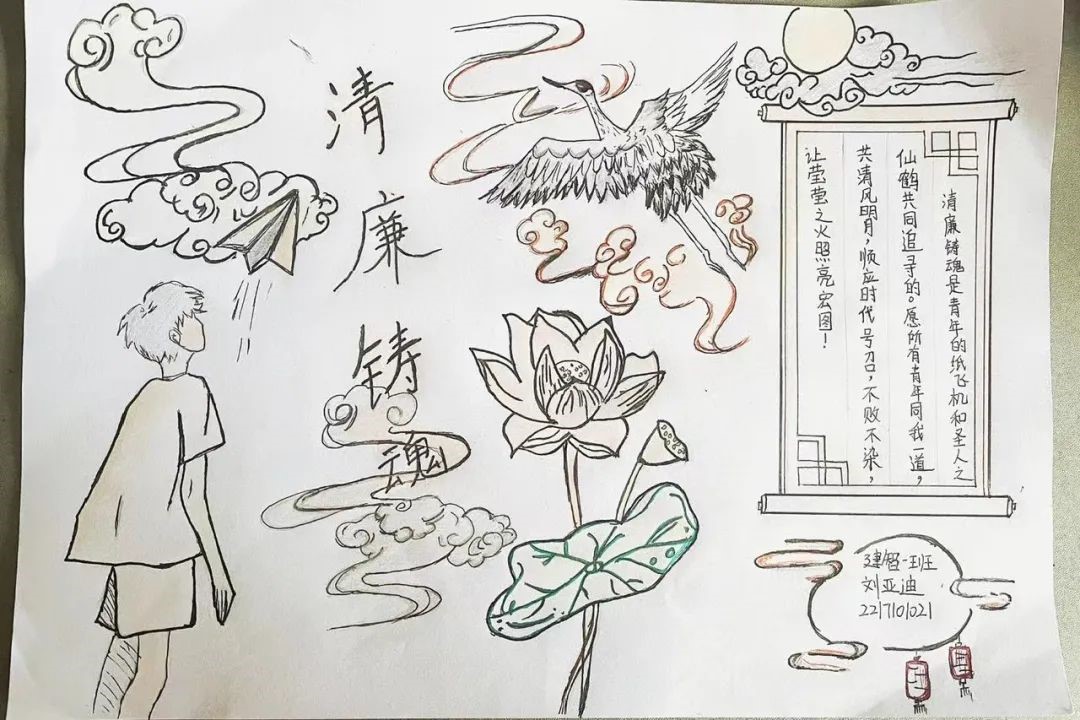 清廉铸魂
清廉铸魂是青年的纸飞机和圣人之
仙鹤共同追寻的。愿所有青年同我一道，
共清风明月，顺应时代号召，不败不染，
让莹莹之火照亮宏图！
建智一班
刘亚迪
2217101021